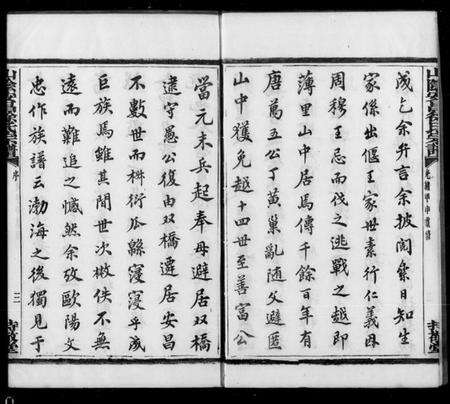 成乞余弁言余披閱纍日知生
家係出偃王家世素行仁義因
周穆王忌而伐之逃戰之越即
薄里山中居焉傳千餘百年有
唐萬五公丁黃巢亂隨父避匿
山中獲免越十四世至善富公
當元末兵起奉母避居双橋
逮守愚公復由双橋遷居安昌
不數世而椒衍瓜緜寖寖乎成
巨族焉雖其間世次散佚不無
遠而難追之憾然余攷歐陽文
忠作族譜云渤海之後獨見于
序
三